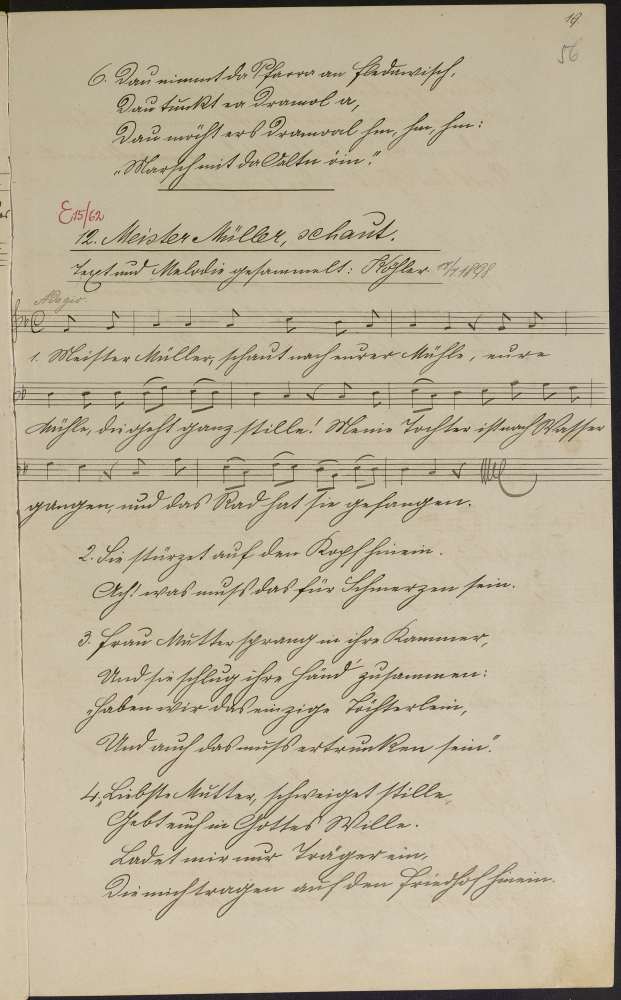 19.
56
6. Dau nimmt da Pfarra an Flederwisch,
Dau tunkt ea dramol a,
Dau möcht ers dramoal hm, hm, hm:
"Marsch mit da Oaltn öin."
E 15/62
12. Meister Müller, schaut.
Text und Melodie gesammelt: Köhler 1898
Adagio.
1. Meister Müller, schaut nach eurer Mühle, eure
Mühle, die geht ganz stille! Meine Tochter ist nach Wasser
gangen, und das Rad hat sie gefangen.
2. Sie stürzet auf den Kopf hinein.
Ach! was muß das für Schmerzen sein.
3. Frau Mutter sprang in ihre Kammer,
Und sie schlug ihre Händ' zusammen:
"Haben wir das einzige Töchterlein,
Und auch das muß ertrunken sein."
4. "Liebste Mutter, schweiget stille,
Gebt euch in Gottes Wille.
Ladet mir nur Träger ein,
Die mich tragen auf den Friedhof hinein.